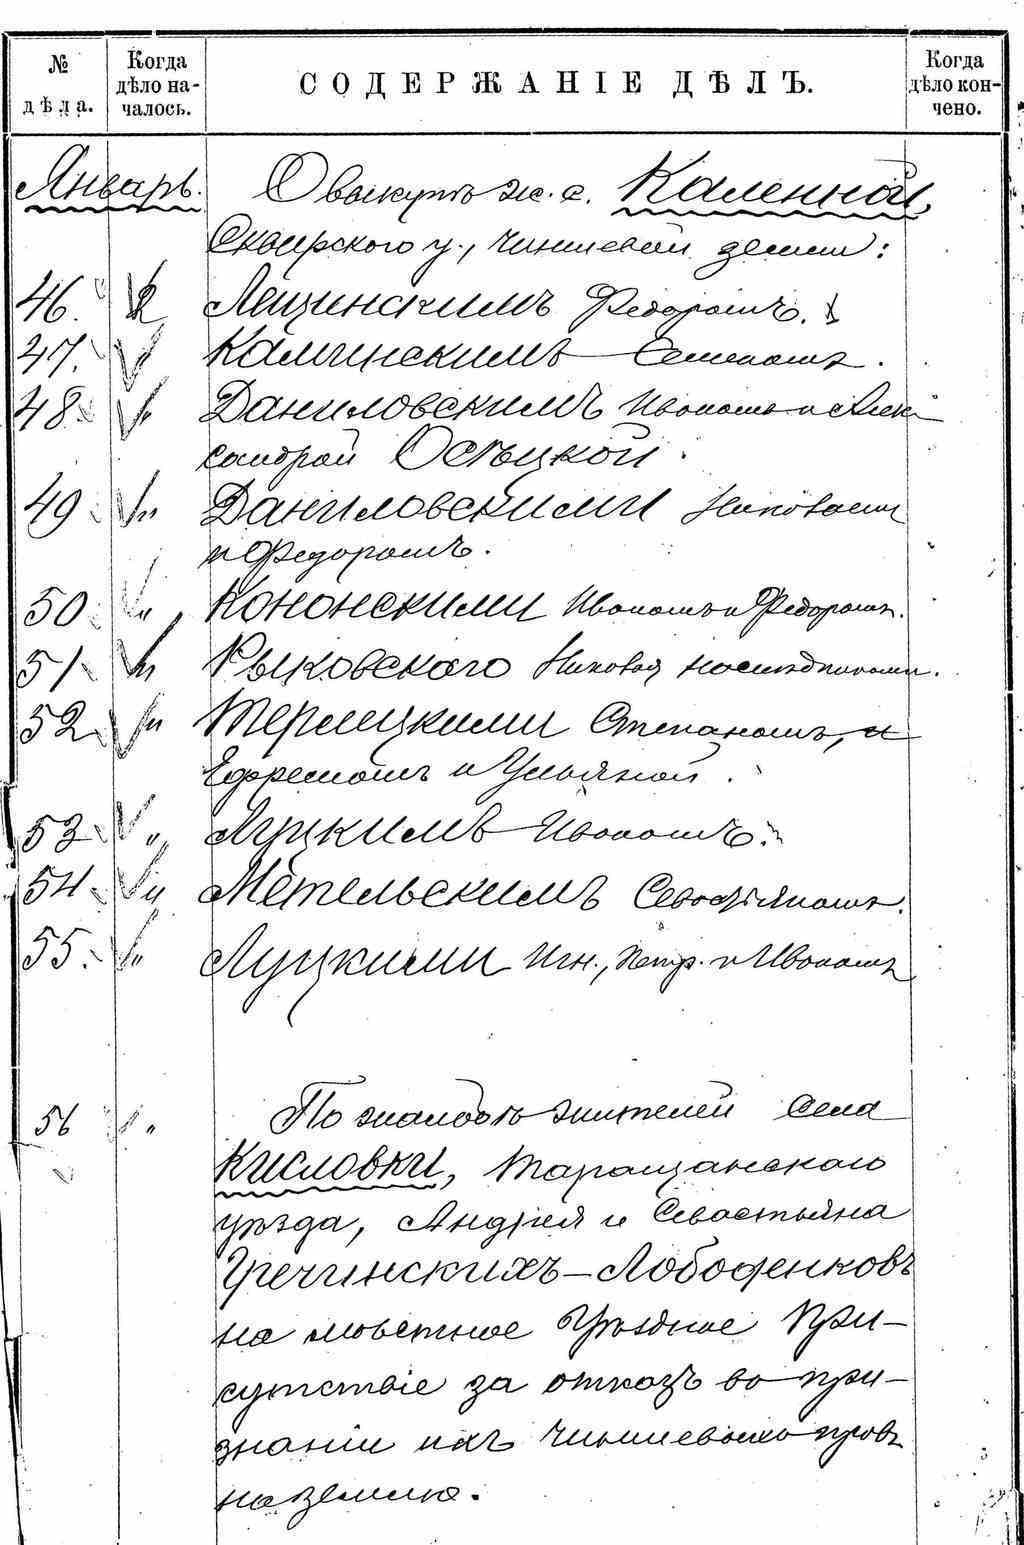 № дѣла.
Когда дѣло на-чалось.
СОДЕРЖАНІЕ ДѢЛЪ.
Когда дѣло кон-чено.
Январь. О выкупѣ ж. с. Каленной,
Сквирского у., чиншевой земли:
46. Лещинскимъ Федоромъ.
47. " Калчинскимъ Семеномъ.
48. " Даниловскимъ Иваномъ и Алек
сандрой Осѣцкой.
49. " Даниловскими Николаемъ
и Федоромъ.
50. " Кононскими Иваномъ и Федоромъ.
51. " Рыковского Николая наслѣдниками.
52. " Терлецкими Степаномъ, и
Ефремомъ и Ульяной.
53. " Луцкимъ Иваномъ.
54. " Метельскимъ
55. " Луцкими Игн., Петр. и Иваномъ
56 " По жалобѣ жителей села
Кисловки, Таращанскаго
уѣзда, Андрея и Севастьяна
Гречинскихъ-Лободенковъ
на мѣстное Уѣздное При-
сутствіе за отказъ въ при-
знаніи ихъ чиншевыхъ правъ
на землю.